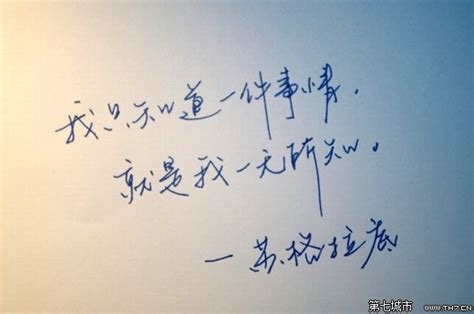 我只知道一件事情，
就是我一无所知。
—苏格拉底
第七城市 WWW.TH7.CN